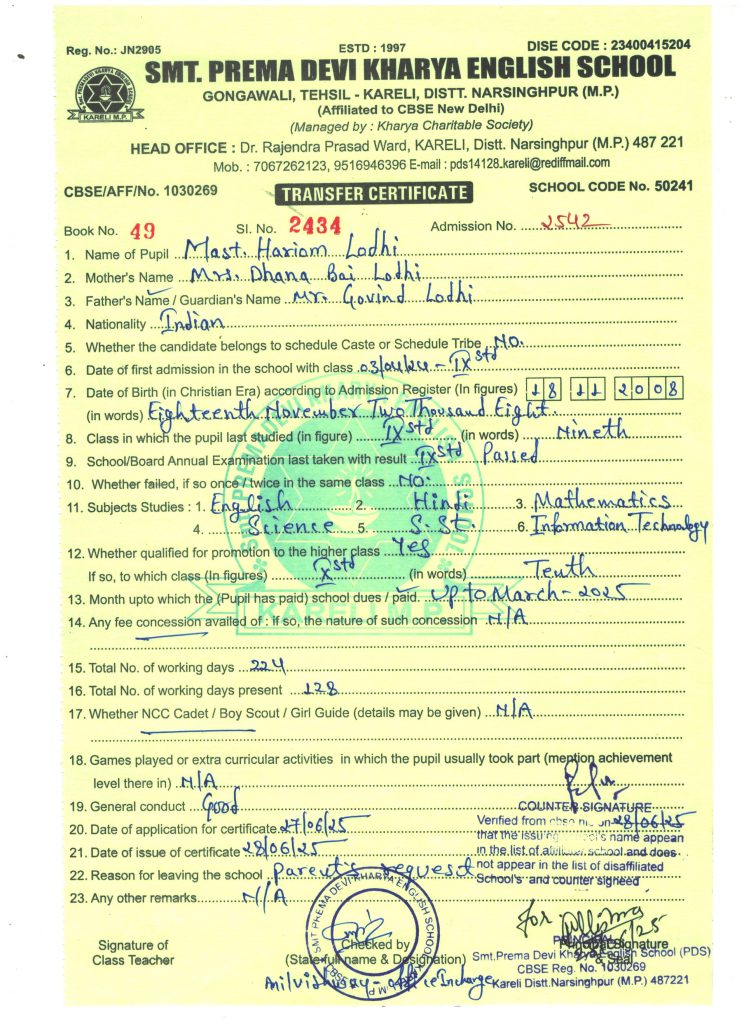 Reg. No.: JN2905 ESTD : 1997 DISE CODE : 23400415204
SMT. PREMA DEVI KHARYA ENGLISH SCHOOL
GONGAWALI, TEHSIL - KARELI, DISTT. NARSINGHPUR (M.P.)
(Affiliated to CBSE New Delhi)
(Managed by : Kharya Charitable Society)
KARELI M.P.
HEAD OFFICE : Dr. Rajendra Prasad Ward, KARELI, Distt. Narsinghpur (M.P.) 487 221
Mob. : 7067262123, 9516946396 E-mail : pds14128.kareli@rediffmail.com
CBSE/AFF/No. 1030269 TRANSFER CERTIFICATE SCHOOL CODE No. 50241
Book No. 49 Sl. No. 2434 Admission No. 2542
1. Name of Pupil Mast. Hariom Lodhi
2. Mother's Name Mrs. Dhana Bai Lodhi
3. Father's Name / Guardian's Name Mr. Govind Lodhi
4. Nationality Indian
5. Whether the candidate belongs to schedule Caste or Schedule Tribe NO.
6. Date of first admission in the school with class 03/04/24 - IX std
7. Date of Birth (in Christian Era) according to Admission Register (In figures) 18 11 2008
(in words) Eighteenth November Two Thousand Eight.
8. Class in which the pupil last studied (in figure) IX std (in words) Nineth
9. School/Board Annual Examination last taken with result IX std Passed
10. Whether failed, if so once / twice in the same class NO.
11. Subjects Studies : 1. English 2. Hindi 3. Mathematics
4. Science 5. S.St. 6. Information Technology
12. Whether qualified for promotion to the higher class Yes
If so, to which class (In figures) X std (in words) Tenth
13. Month upto which the (Pupil has paid) school dues / paid. Up to March - 2025
KARELI M.P.
14. Any fee concession availed of : if so, the nature of such concession N/A
15. Total No. of working days 224
16. Total No. of working days present 128
17. Whether NCC Cadet / Boy Scout / Girl Guide (details may be given) N/A
18. Games played or extra curricular activities in which the pupil usually took part (mention achievement
level there in) N/A
19. General conduct Good
COUNTER SIGNATURE
20. Date of application for certificate 27/06/25
Verified from cbse on 28/06/25
that the issuing name appear
21. Date of issue of certificate 28/06/25
in the list of school and does
22. Reason for leaving the school Parent's request
not appear in the list of disaffiliated
School's and counter signeed
23. Any other remarks N/A
SMT PREMA DEVI KHARYA ENGLISH SCHOOL
For
Signature of Class Teacher
Checked by
(State full name & Designation)
PRINCIPAL
Principal Signature & Seal
Smt.Prema Devi Kharya English School (PDS)
CBSE Reg. No. 1030269
Kareli Distt.Narsinghpur (M.P.) 487221